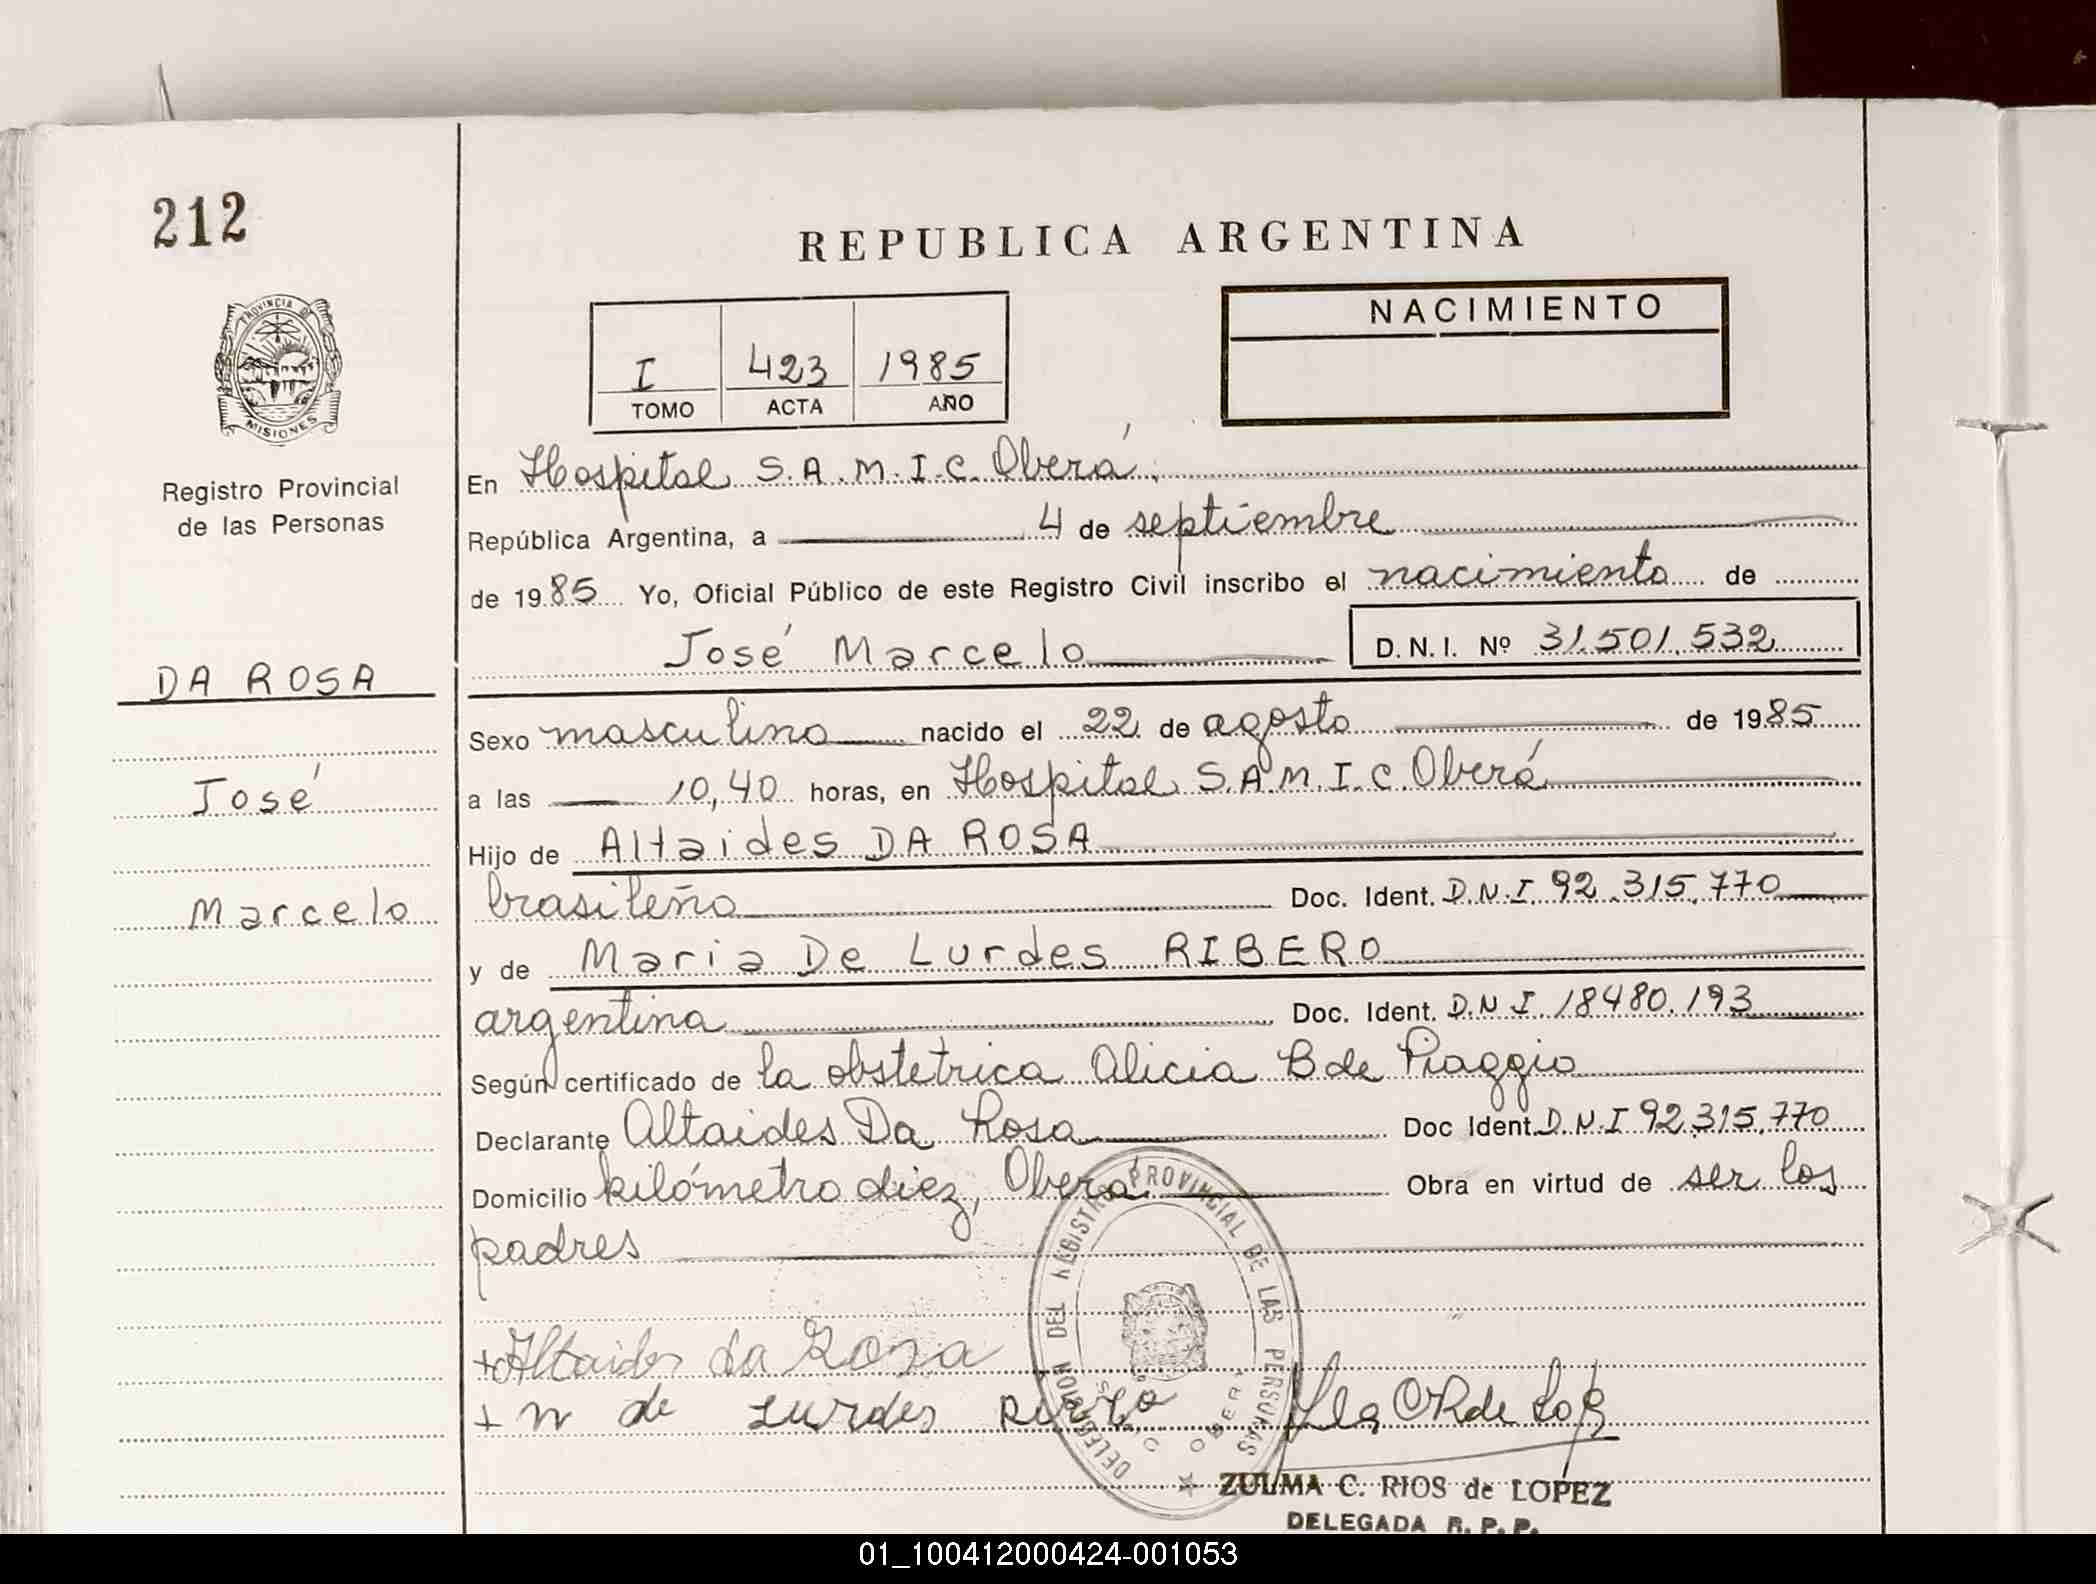 212
REPUBLICA ARGENTINA
NACIMIENTO
I 423 1985
TOMO ACTA AÑO
PROVINCIA DE
MISIONES
Registro Provincial
de las Personas
DA ROSA
José
Marcelo
En Hospital S.A.M.I.C. Oberá,
República Argentina, a 4 de septiembre
de 1985 Yo, Oficial Público de este Registro Civil inscribo el nacimiento de
José Marcelo D.N.I. Nº 31.501.532
Sexo masculino nacido el 22 de agosto de 1985
a las 10,40 horas, en Hospital S.A.M.I.C. Oberá
Hijo de Altaides DA ROSA
brasileño Doc. Ident. D.N.I. 92.315.770
y de Maria De Lurdes RIBERO
argentina Doc. Ident. D.N.I 18480.193
Según certificado de la obstetrica Alicia B de Piaggio
Declarante Altaides Da Rosa Doc Ident. D.N.I 92.315.770
Domicilio kilómetro diez, Oberá Obra en virtud de ser los
padres
DELEGACION DEL REGISTRO PROVINCIAL DE LAS PERSONAS
+Altaides da Rosa
+ m de Lurdes
ZULMA C. RIOS de LOPEZ
DELEGADA R.P.P.
01_100412000424-001053